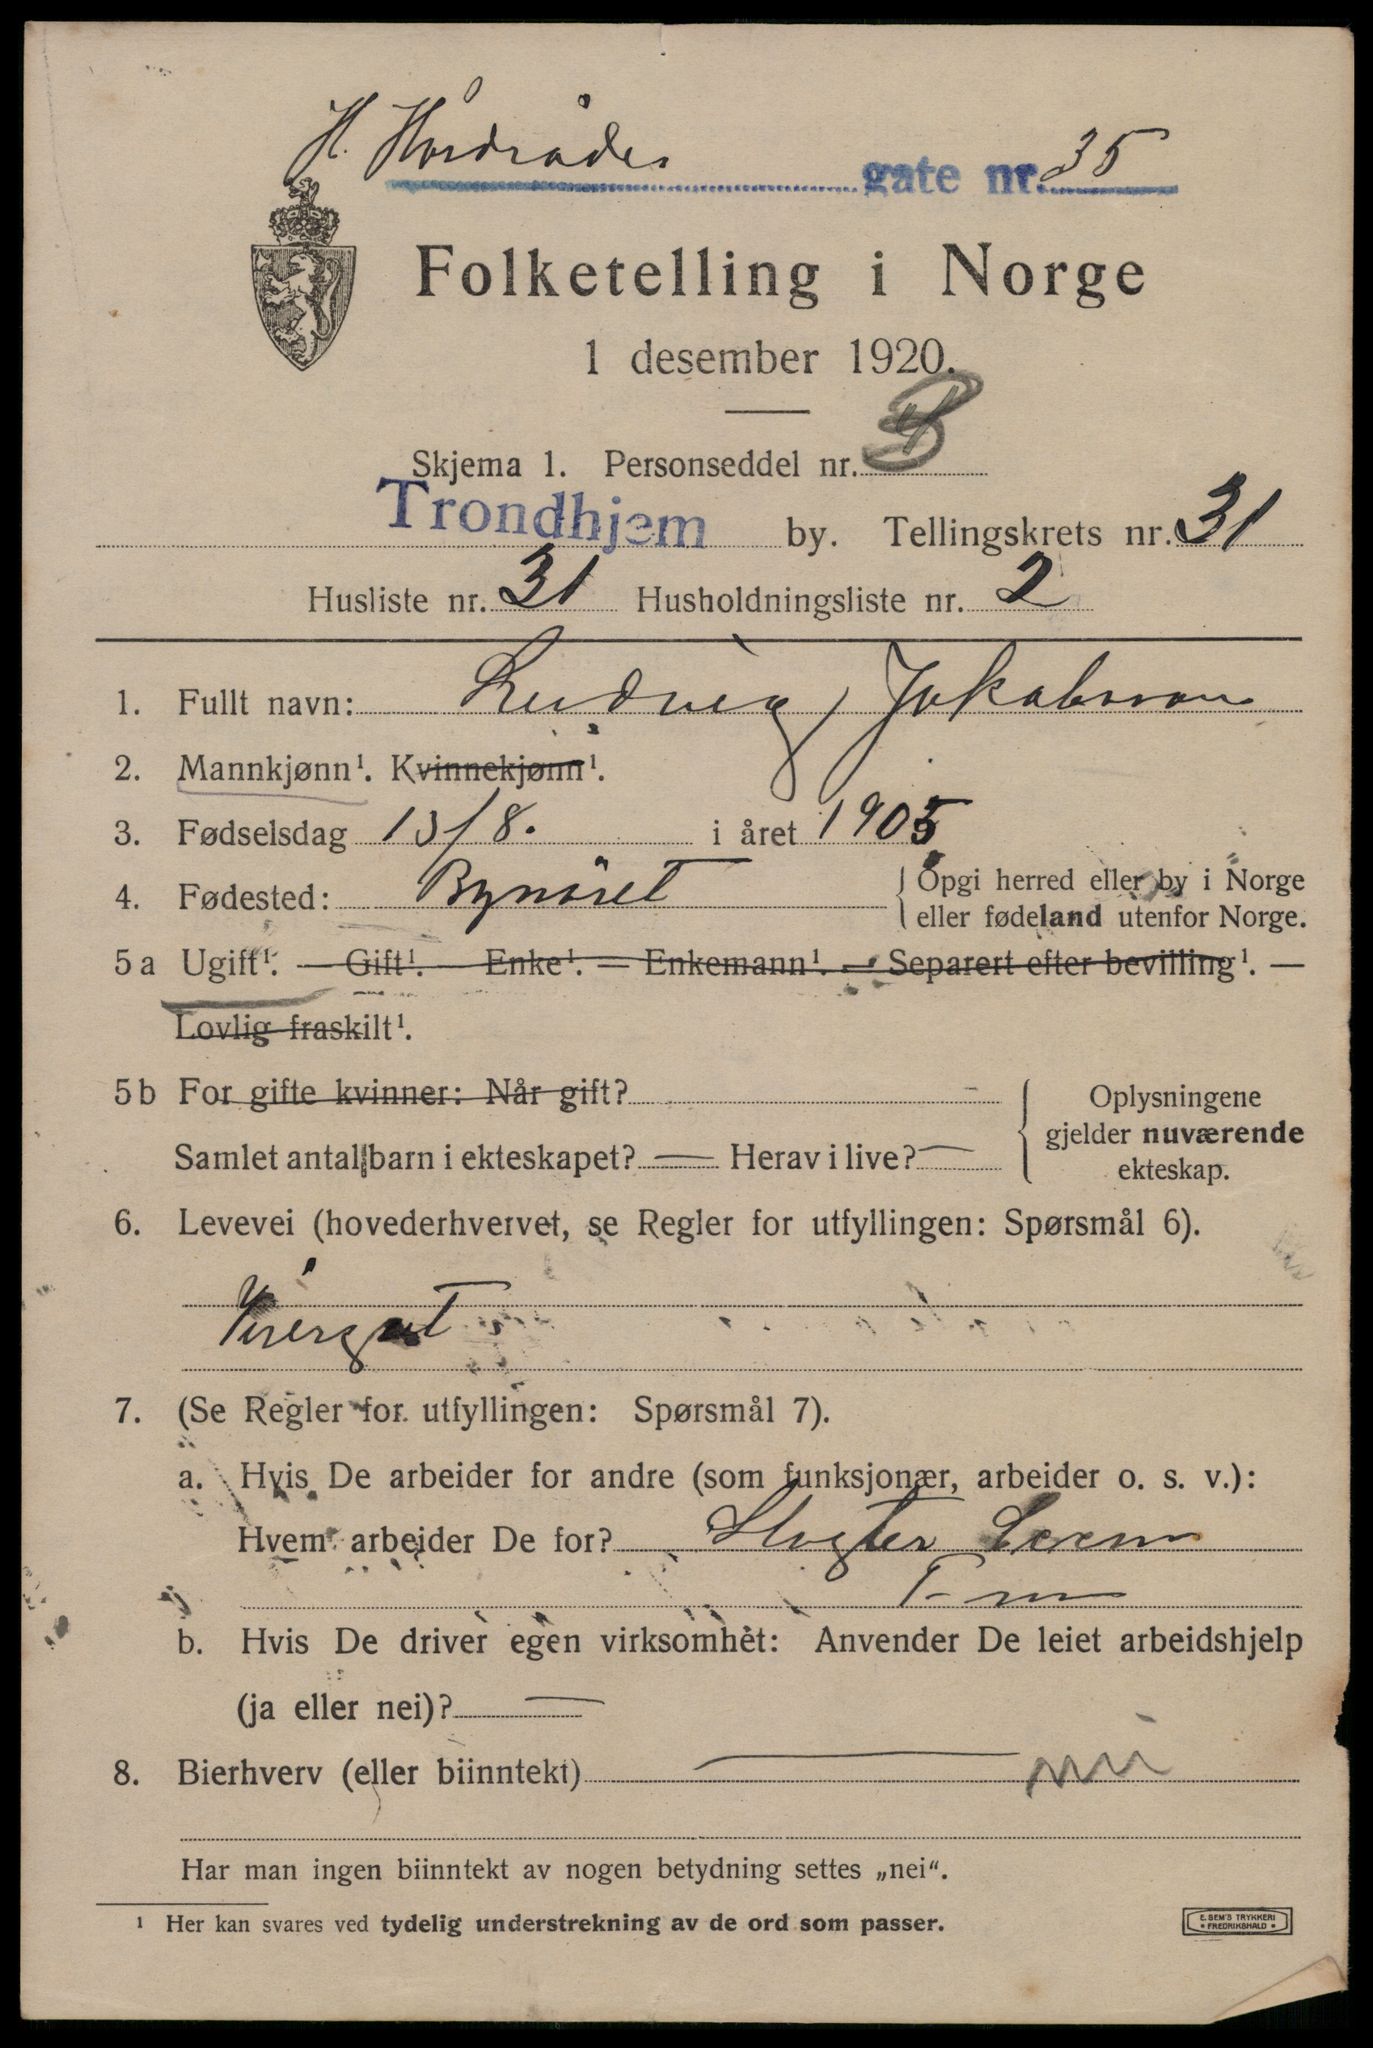 H. Hårdrådes gate nr. 35
Folketelling i Norge
1 desember 1920.
Skjema 1. Personseddel nr.
Trondhjem by. Tellingskrets nr. 31
Husliste nr. 31 Husholdningsliste nr. 2
1. Fullt navn: Ludvig Jakobsson
2. Mannkjønn¹. Kvinnekjønn¹.
3. Fødselsdag 13/8. i året 1905
4. Fødested: Bynæset { Opgi herred eller by i Norge
eller fødeland utenfor Norge.
5a Ugift¹. — Gift¹. — Enke¹. — Enkemann¹. — Separert efter bevilling¹. —
Lovlig fraskilt¹.
5b For gifte kvinner: Når gift? -
Samlet antall barn i ekteskapet? — Herav i live? —
Oplysningene
gjelder nuværende
ekteskap.
6. Levevei (hovederhvervet, se Regler for utfyllingen: Spørsmål 6).
Visergut
7. (Se Regler for utfyllingen: Spørsmål 7).
a. Hvis De arbeider for andre (som funksjonær, arbeider o. s. v.):
Hvem arbeider De for? Slagter
b. Hvis De driver egen virksomhet: Anvender De leiet arbeidshjelp
(ja eller nei)? —
8. Bierhverv (eller biinntekt) — nei
Har man ingen biinntekt av nogen betydning settes „nei“.
¹ Her kan svares ved tydelig understrekning av de ord som passer.
E. SEM'S TRYKKERI
FREDRIKSHALD